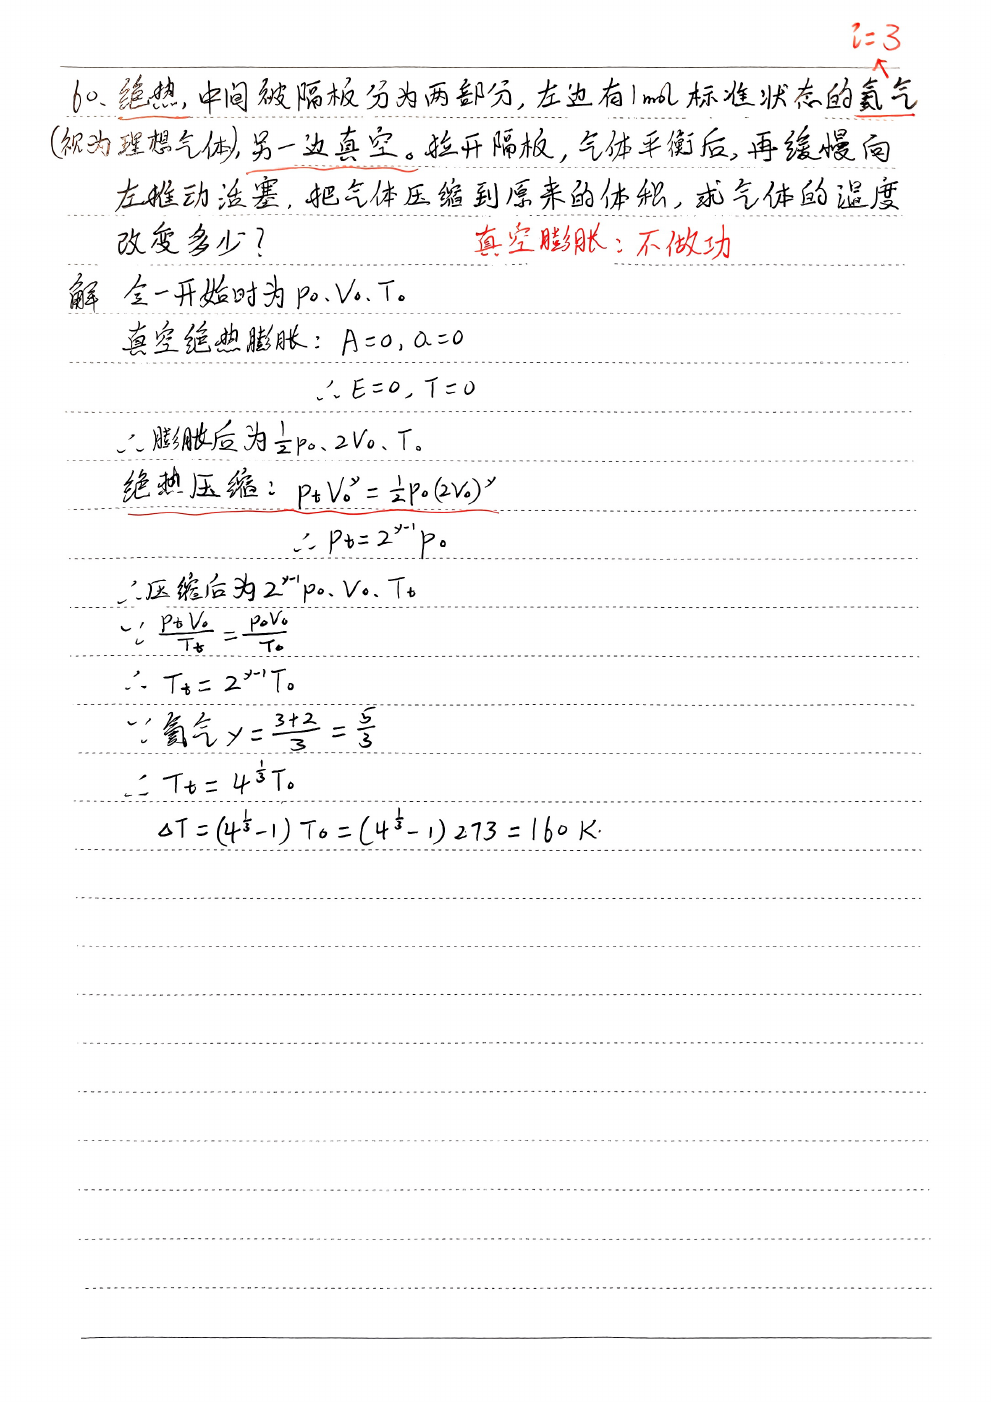 i=3
60、绝热，中间被隔板分为两部分，左边有1mol标准状态的氦气
(视为理想气体)，另一边真空。拉开隔板，气体平衡后，再缓慢向
左推动活塞，把气体压缩到原来的体积，求气体的温度
改变多少？ 真空膨胀：不做功
解 令一开始时为p₀、V₀、T₀
真空绝热膨胀：A=0，Q=0
∴E=0，T=0
∴膨胀后为½p₀、2V₀、T₀
绝热压缩：pₜV₀^γ=½p₀(2V₀)^γ
∴pₜ=2^(γ-1)p₀
∴压缩后为2^(γ-1)p₀、V₀、Tₜ
∵ pₜV₀/Tₜ = p₀V₀/T₀
∴ Tₜ=2^(γ-1)T₀
∵氦气γ=(3+2)/3=5/3
∴ Tₜ=4^(1/3)T₀
ΔT=(4^(1/3)-1)T₀=(4^(1/3)-1)273=160K.